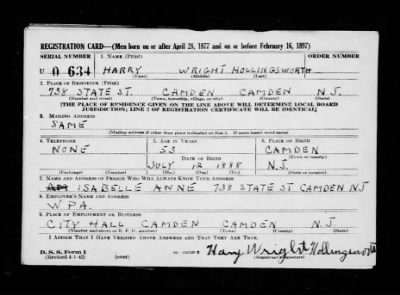 REGISTRATION CARD—(Men born on or after April 28, 1877 and on or before February 16, 1897)
SERIAL NUMBER 1. NAME (Print) ORDER NUMBER
U 0 634 HARRY WRIGHT HOLLINGSWORTH
(First) (Middle) (Last)
2. PLACE OF RESIDENCE (Print)
738 STATE ST. CAMDEN CAMDEN N.J.
(Number and street) (Town, township, village, or city) (County) (State)
[THE PLACE OF RESIDENCE GIVEN ON THE LINE ABOVE WILL DETERMINE LOCAL BOARD
JURISDICTION; LINE 2 OF REGISTRATION CERTIFICATE WILL BE IDENTICAL]
3. MAILING ADDRESS
SAME
(Mailing address if other than place indicated on line 2. If same insert word same)
4. TELEPHONE 5. AGE IN YEARS 6. PLACE OF BIRTH
NONE 53 CAMDEN
DATE OF BIRTH (Town or county)
JULY 12 1888 N.J.
(Exchange) (Number) (Mo.) (Day) (Yr.) (State or country)
7. NAME AND ADDRESS OF PERSON WHO WILL ALWAYS KNOW YOUR ADDRESS
ISABELLE ANNE 738 STATE ST CAMDEN NJ
8. EMPLOYER'S NAME AND ADDRESS
WPA.
9. PLACE OF EMPLOYMENT OR BUSINESS
CITY HALL CAMDEN CAMDEN N.J.
(Number and street or R. F. D. number) (Town) (County) (State)
I AFFIRM THAT I HAVE VERIFIED ABOVE ANSWERS AND THAT THEY ARE TRUE.
D. S. S. Form 1
(Revised 4-1-42) (over) Harry Wright Hollingsworth
(Registrant's signature)